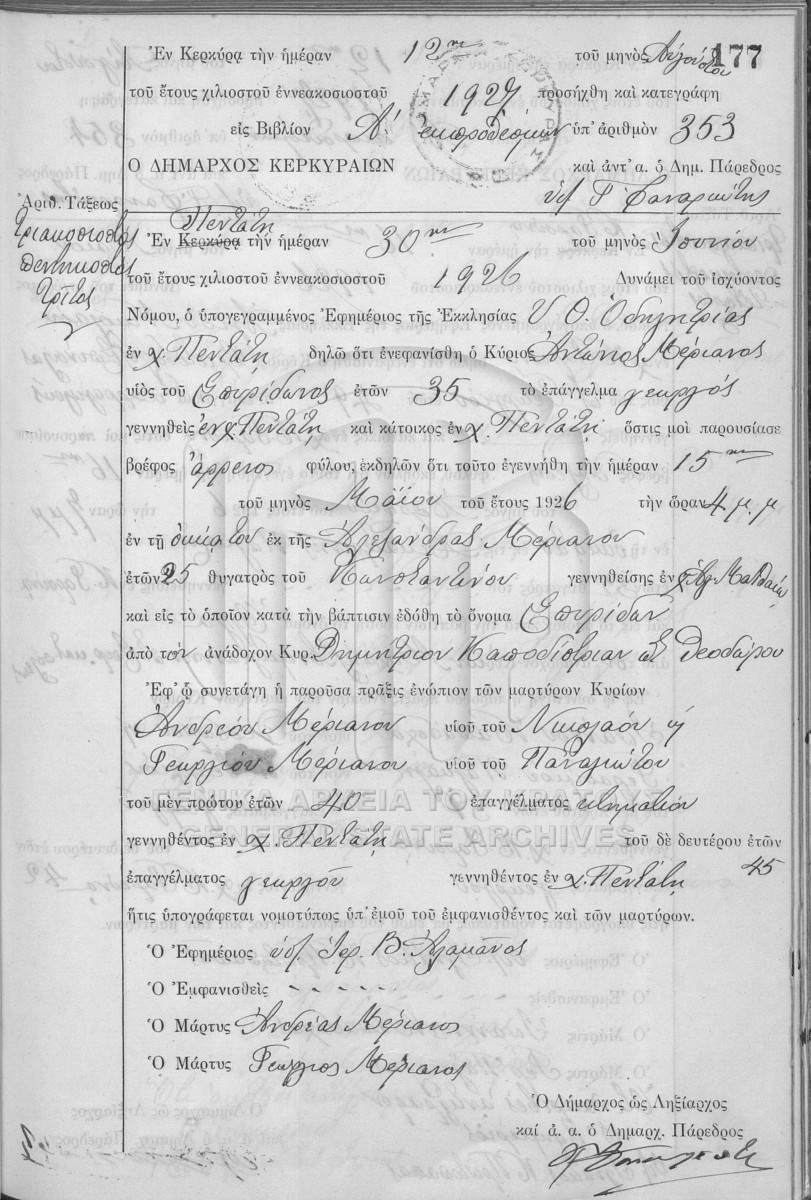 177
Ἐν Κερκύρᾳ τὴν ἡμέραν 12ην τοῦ μηνὸς Αὐγούστου
τοῦ ἔτους χιλιοστοῦ ἐννεακοσιοστοῦ 1927 προσήχθη καὶ κατεγράφη
εἰς Βιβλίον Α' ἐκπροθέσμων ὑπ' ἀριθμὸν 353
Ο ΔΗΜΑΡΧΟΣ ΚΕΡΚΥΡΑΙΩΝ καὶ ἀντ' α. ὁ Δημ. Πάρεδρος
Ἀριθ. Τάξεως
Τριακοσιοστὸς
πεντηκοστὸς
τρίτος
Πεντάτῃ
Ἐν Κερκύρᾳ τὴν ἡμέραν 30ην τοῦ μηνὸς Ἰουνίου
τοῦ ἔτους χιλιοστοῦ ἐννεακοσιοστοῦ 1926 Δυνάμει τοῦ ἰσχύοντος
Νόμου, ὁ ὑπογεγραμμένος Ἐφημέριος τῆς Ἐκκλησίας Υ. Θ. Ὁδηγητρίας
ἐν χ. Πεντάτῃ δηλῶ ὅτι ἐνεφανίσθη ὁ Κύριος Ἀντώνιος Μέριανος
υἱὸς τοῦ Σπυρίδωνος ἐτῶν 35 τὸ ἐπάγγελμα γεωργός
γεννηθεὶς ἐν χ. Πεντάτῃ καὶ κάτοικος ἐν χ. Πεντάτῃ ὅστις μοὶ παρουσίασε
βρέφος ἄρρενος φύλου, ἐκδηλῶν ὅτι τοῦτο ἐγεννήθη τὴν ἡμέραν 15ην
τοῦ μηνὸς Μαΐου τοῦ ἔτους 1926 τὴν ὥραν 4 μ μ
ἐν τῇ οἰκίᾳ του ἐκ τῆς Ἀλεξάνδρας Μέριανου
ἐτῶν 25 θυγατρὸς τοῦ Κωνσταντίνου γεννηθείσης ἐν χ. Ἁγ. Ματθαίῳ
καὶ εἰς τὸ ὁποῖον κατὰ τὴν βάπτισιν ἐδόθη τὸ ὄνομα Σπυρίδων
ἀπὸ τὸν ἀνάδοχον Κυρ. Δημήτριον Καποδίστριαν Θεοδώρου
Ἐφ' ᾧ συνετάγη ἡ παροῦσα πρᾶξις ἐνώπιον τῶν μαρτύρων Κυρίων
Ἀνδρέου Μέριανου υἱοῦ τοῦ Νικολάου ἢ
Γεωργίου Μέριανου υἱοῦ τοῦ Παναγιώτου
τοῦ μὲν πρώτου ἐτῶν 40 ἐπαγγέλματος κτηματίου
ΓΕΝΙΚΑ ΑΡΧΕΙΑ ΤΟΥ ΚΡΑΤΟΥΣ
GENERAL STATE ARCHIVES
γεννηθέντος ἐν χ. Πεντάτῃ τοῦ δὲ δευτέρου ἐτῶν 45
ἐπαγγέλματος γεωργοῦ γεννηθέντος ἐν χ. Πεντάτῃ
ἥτις ὑπογράφεται νομοτύπως ὑπ' ἐμοῦ τοῦ ἐμφανισθέντος καὶ τῶν μαρτύρων.
Ὁ Ἐφημέριος Ἱερ. Β. Ἀλαμάνος
Ὁ Ἐμφανισθεὶς - - - - - -
Ὁ Μάρτυς Ἀνδρέας Μέριανος
Ὁ Μάρτυς Γεώργιος Μέριανος
Ὁ Δήμαρχος ὡς Ληξίαρχος
καί ἀ. α. ὁ Δημαρχ. Πάρεδρος